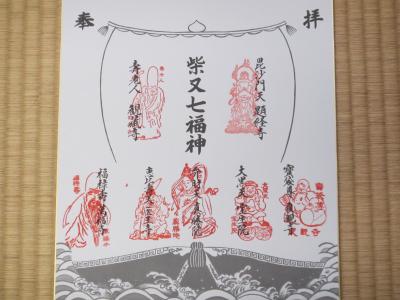 奉拝
柴又七福神
毘沙門天 題経寺
寿老人 観蔵寺
寳袋尊 良観寺
大黒天 宝生院
弁財天 真勝院
恵比寿天 医王寺
福禄寿 万福寺